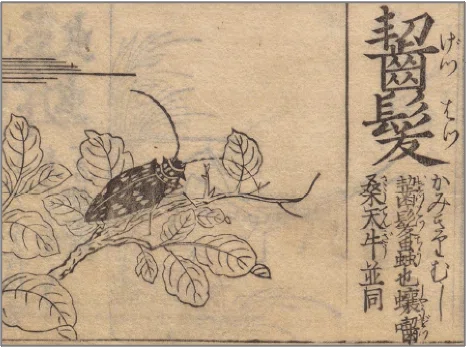 齧髪
げつ はつ
かみきりむし
齧髪番蟲也蠰齧
桑天牛並同